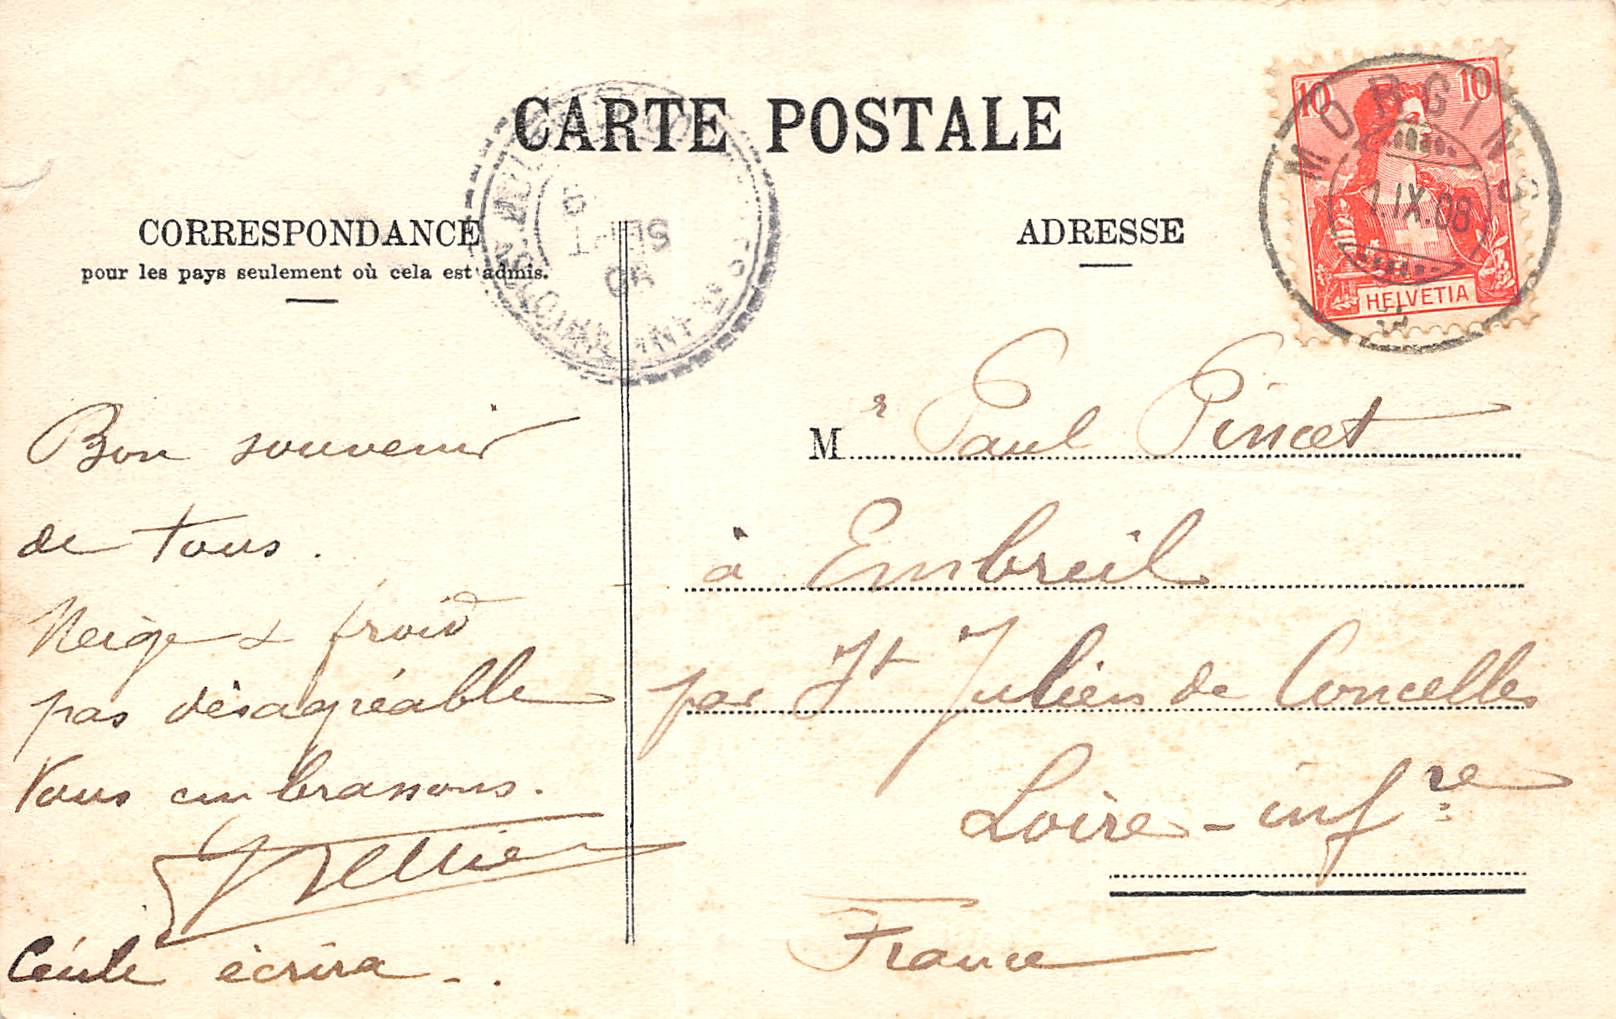 CARTE POSTALE
CORRESPONDANCE
pour les pays seulement où cela est admis.
ADRESSE
10 10
HELVETIA
MORGINS
1.IX.08
SEPT
08
Bon souvenir
de tous.
Neige & froid
pas désagréable
Vous embrassons.
Cécile écrira -.
Mr Paul Pincet
à Embreil
par St Julien de Concelles
Loire-infre
France